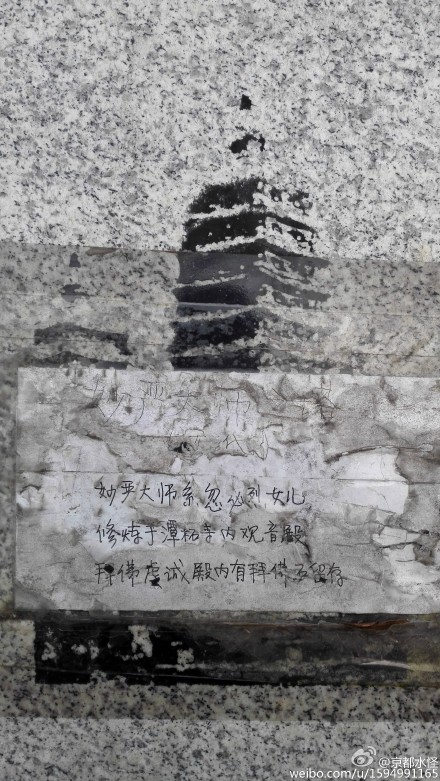 妙严大师塔
妙严大师系忽必烈女儿
修持于潭柘寺内观音殿
拜佛虔诚殿内有拜佛石留存
@京都水怪
weibo.com/u/1594991165